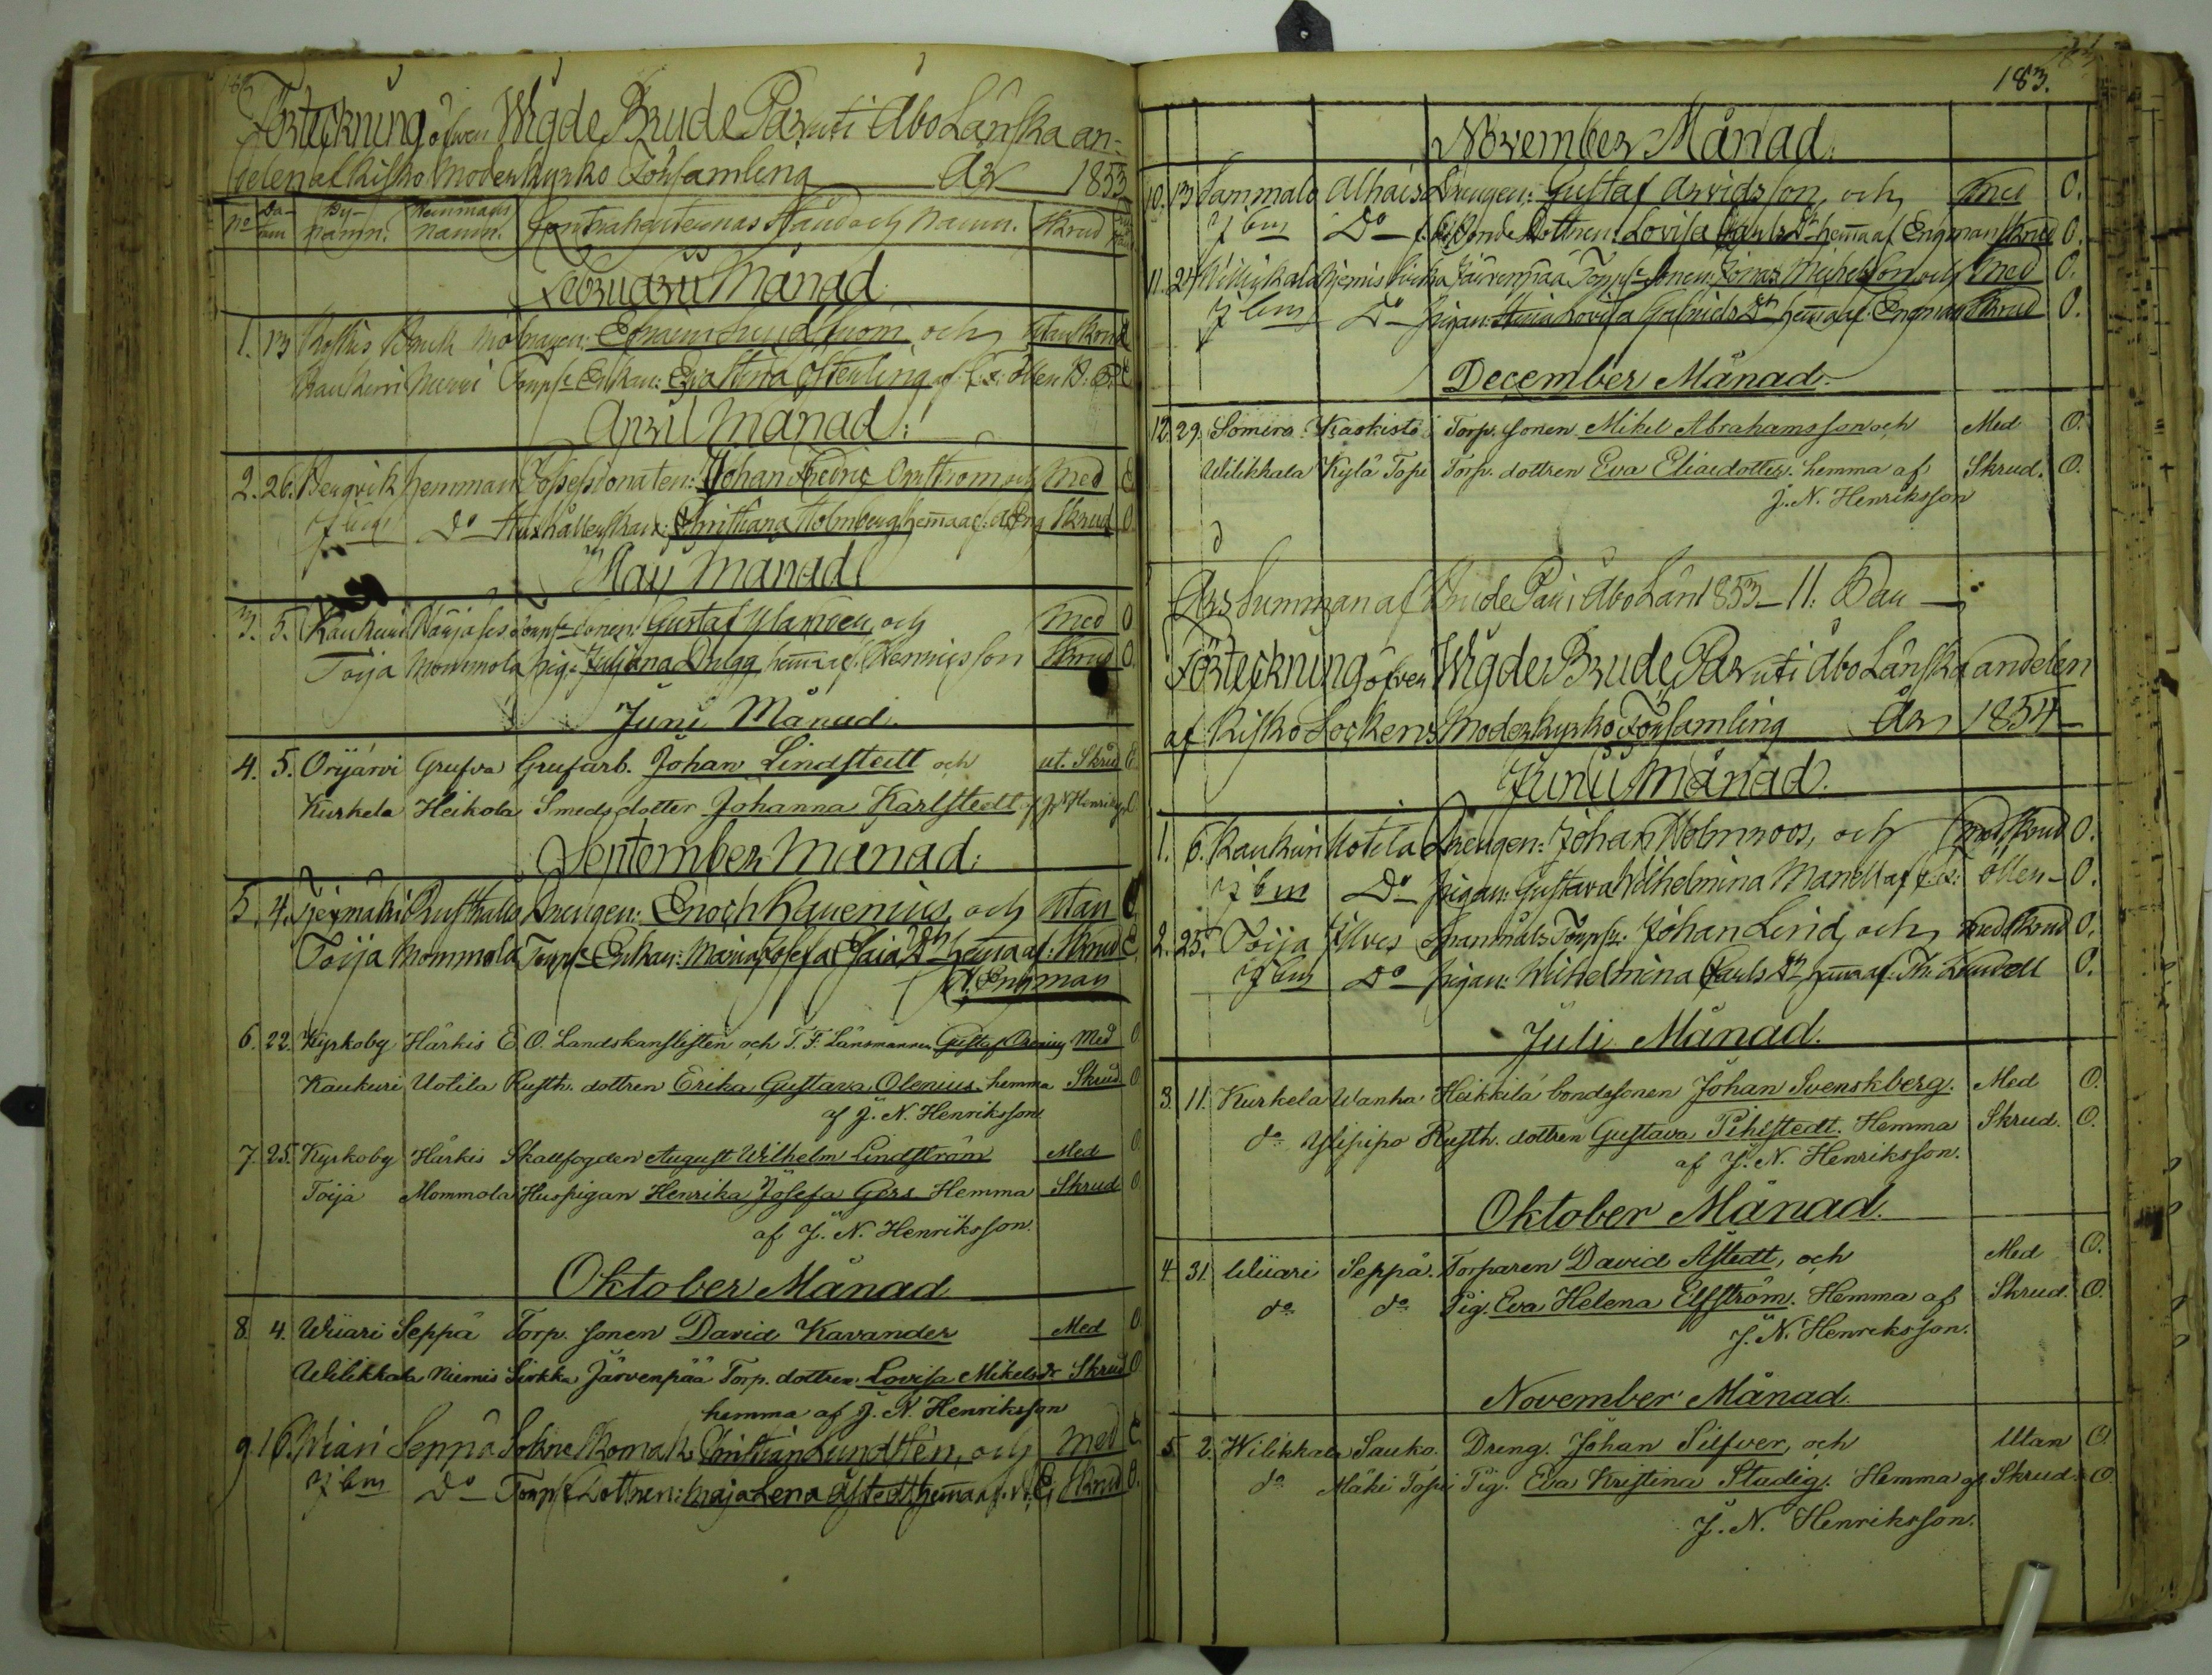 Förteckning öfwer Wigde Brude Par uti Åbo Länska an-
delen af Kisko Moderkyrko Församling År 1853
No Da-tum By-namn. Hemmans namn. Contrahenternas Stånd och Namn. Skrud
Februarii Månad
1. 13 Koskis Bruk Efraim Lundstrom och utan Skrud
Kaukuri Torpe Enkan: Eva Stina Österling af
April Månad:
2. 26. Bergvik hemman Possessionaten: Johan Fredric och Med
Jbm Do Hushållerskan: Christiana Holmberg hemma af: Skrud O
Maii Månad
3. 5. Kaukuri Torps Sonen: Gustaf och Med O
Toija Mommola Pig: Juliana hemma af: Henricsson Skrud O.
Juni Månad.
4. 5. Orijärvi Grufva Grufarb. Johan Lindstedt och ut. Skrud E.
Kurkela Heikola Smedsdotter Johanna Karlstedt af J. N. Henriks. O.
September Månad:
5. 4. Rusthålls Drengen: Enoch Kavenius, och Utan
Toija Mommola Torps Enkan: Maria Josefa Esaia Dr hemma af: Skrud E.
N. Engman
6. 22. Kyrkoby Härkis E. O. Landskanslisten och T. F. Länsmannen Gustaf Med O
Kaukuri Uotila Rusth. dottren Erika Gustava Olenius hemma Skrud O
af J. N. Henriksson
7. 25. Kyrkoby Härkis Skallfogden August Wilhelm Lindström Med O
Toija Mommola Huspigan Henrika Josefa Gers Hemma Skrud O
af J. N. Henriksson.
Oktober Månad
8. 4. Wiiari Seppä Torp. sonen David Kavander Med O
Wilikkala Niemis Sirkka Järvenpää Torp. dottren. Lovisa Mikelsdr Skrud O
hemma af J. N. Henriksson
9. 16. Wiiari Seppä Sokne Skomak. Christian Lundsten, och Med E
Jbm Do Torps Dottren: Maja Lena Åstedt hemma af: N. E. Skrud O.
183.
November Månad.
10. 13 Sammalo Alhais Drengen: Gustaf Arvidsson, och Med O.
Jbm Do Bonde Dottren: Lovisa Pauls Dr hemma af Engman Skrud O.
11. 24 Willikkala Niemis Sirkka Järvenpää Torps Sonen: Jonas Michelsson och Med O.
Jbm Do Pigan: Maria Lovisa Gabriels Dr hemma af: Engman Skrud O.
December Månad.
12. 29. Somero Kaokisto Torp. sonen Mikel Abrahamsson och Med O.
Wilikkala Kylä Topi Torp. dottren Eva Eliaedotter. hemma af Skrud. O.
J. N. Henriksson
Års Summan af Brude Par i Åbo Län 1853 – 11. Par –
Förteckning öfver Wigde Brude Par uti Åbo Länska andelen
af Kisko Sockens Moderkyrko Församling År 1854
Junii Månad.
1. 6. Kaukuri Uotila Drengen: Johan Holmroos, och Med Skrud O.
Jbm Do Pigan: Gustava Wilhelmina Manell af Ollen – O.
2. 25. Toija Ilves Torpr: Johan Lind, och Med Skrud O.
Jbm Do Pigan: Wilhelmina Pauls Dr hemma af: Th. O.
Juli Månad.
3. 11. Kurkela Wanha Heikkilä bondesonen Johan Svenskberg. Med O.
do Ylipipo Rusth. dottren Gustava Pihlstedt. Hemma Skrud. O.
af J. N. Henriksson.
Oktober Månad.
4. 31. Wiiari Seppä. Torparen David Åstedt, och Med O.
do do Pig. Eva Helena Elfström. Hemma af Skrud. O.
J. N. Henriksson.
November Månad
5. 2. Wilikkala Sauko. Dreng. Johan Silfver, och Utan O.
do Mäki Topi Pig. Eva Kristina Stadig. Hemma af Skrud O.
J. N. Henriksson.